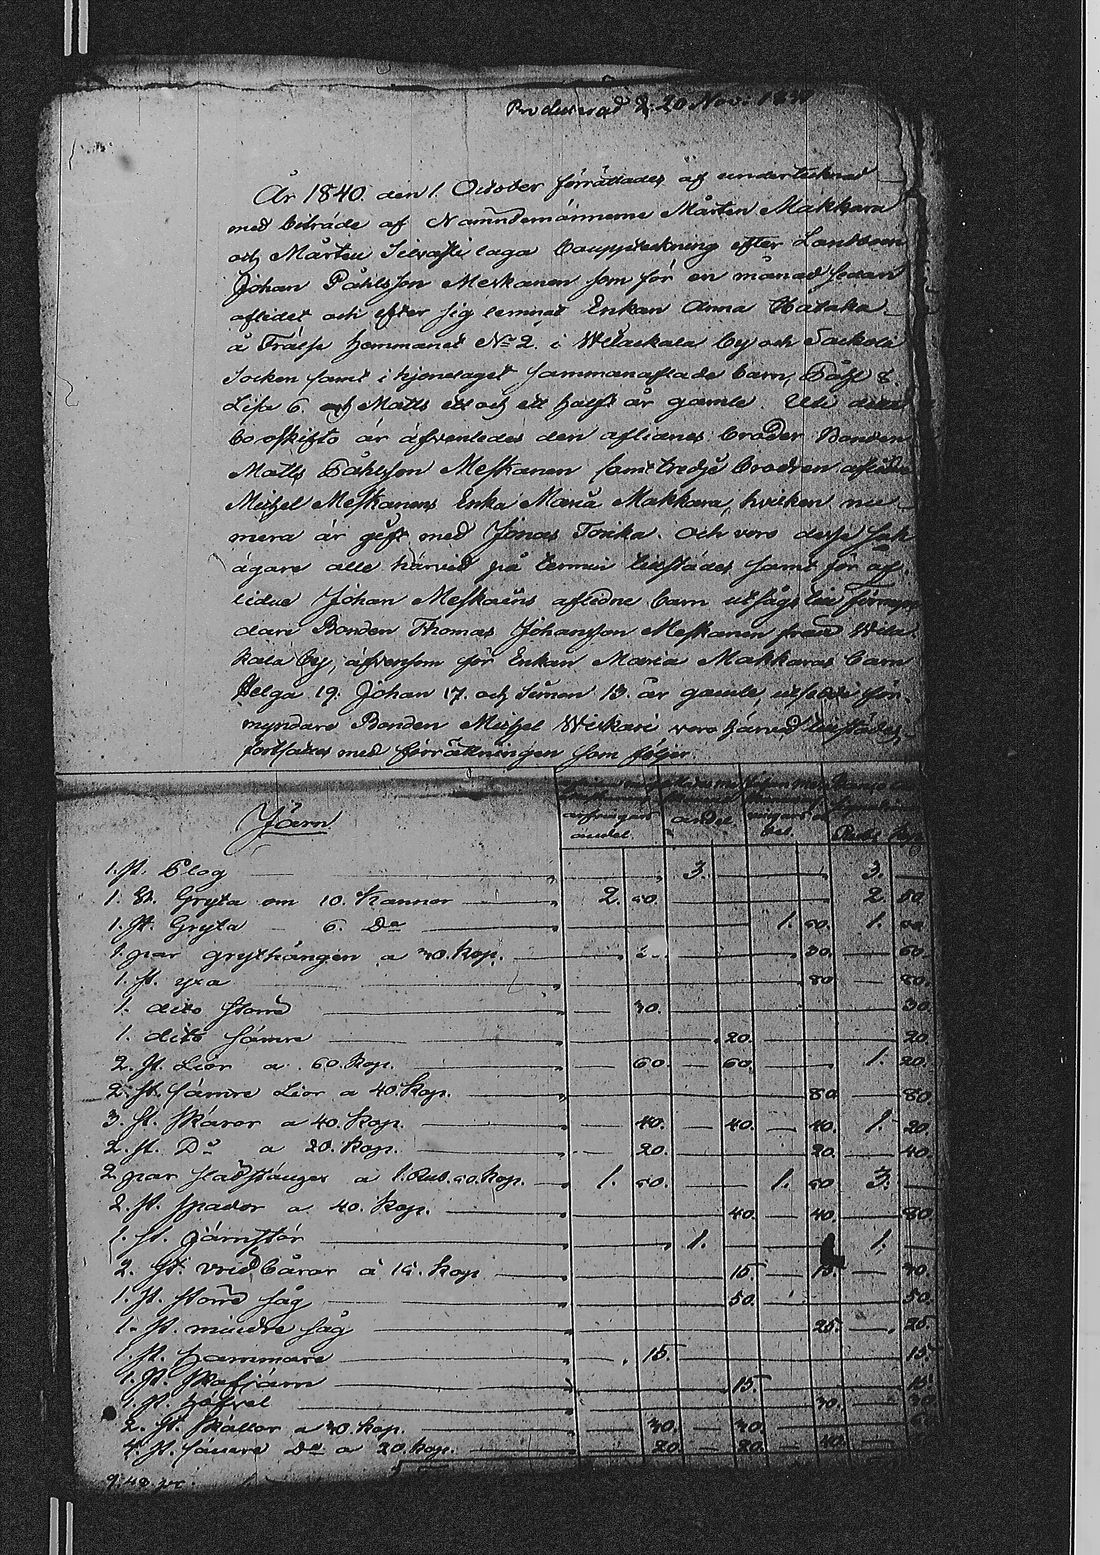 Producerad d. 20 Nov: 18
År 1840. den 1. October förrättades af undertecknad
med biträde af Nämndemännerne Mårten Makkara
och Mårten laga Bouppteckning efter Landbonden
Johan Påhlsson Meskanen som för en månad sedan
aflidet och efter sig lemnat Enkan Anna Hataka
å Frälse Hemmanet No 2. i Wälaskala by och Sackola
Socken samt i hjonelaget sammanaflade barn, Påhl 8.
Lisa 6. och Matts ett och ett half år gamle. Uti detta
bo oskifto är äfvenledes den aflidnes broder Bonden
Matts Påhlsson Meskanen samt tredje brodren aflidne
Michel Meskanens Enka Maria Makkara, hvilken nu-
mera är gift med Jonas Torika. och voro desse sak
ägare alle härvid på termin tillstädes samt för af-
lidne Johan Meskains aflidne barn utsågs till förmyn
dare Bonden Thomas Johansson Meskanen från Wila
kala by, äfvensom för Enkan Maria Makkaras barn
Helga 19. Johan 17. och Simon 13. år gamle, utsedde för
myndare Bonden Michel Wiskari voro härvid tillstädes,
fortsattes med förrättningen som följer.
Jern
arfvingars andel. andel Rubl Kop
1. st. Plog 3. 3.
1. st. Gryta om 10. Kannor 2. 50. 2. 50.
1. st. Gryta 6. Do 1. 50. 1. 50
1. par grythängen a 30. Kop. 30. 60.
1. st. yxa 80 80.
1. dito större 30. 30.
1. dito sämre 20. 20.
2. st. Lior a 60. Kop. 60. 60. 1. 20.
2. st. sämre Lior a 40. Kop. 80 80.
3. st. skäror a 40. Kop. 40. 40. 40. 1. 20
2. st. Do a 20. Kop. 20. 20. 40.
2. par stånger a 1. Rub. 50. Kop. 1. 50. 1. 50 3.
2. st. spador a 40. Kop. 40. 40. 80.
1. st. järnstör 1. 1.
2. st. vridbårar à 15. Kop 15 15. 30.
1. st. större såg 50. 50.
1. st. mindre såg 25. 25.
1. st. Hammare 15. 15
1. st. skafjärn 15. 15
1. st. Höfvel 30. 30.
2. st. skällor a 30. Kop. 30. 30. 60
4. st. sämre Do a 20. Kop. 20. 20. 40.